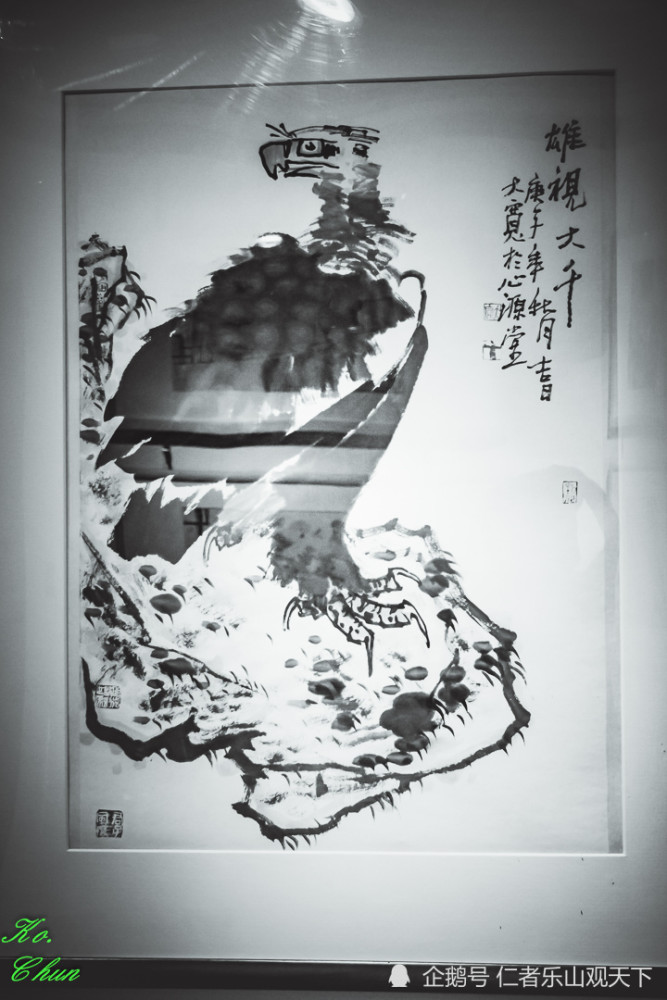 雄視大千
庚子年秋月吉日
大寬於心源堂
Ko.
Chun
企鹅号 仁者乐山观天下